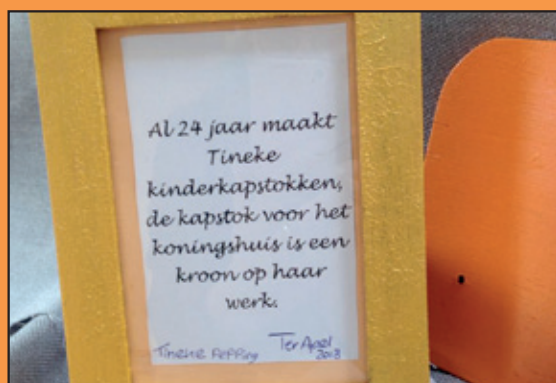 Al 24 jaar maakt
Tineke
kinderkapstokken,
de kapstok voor het
koningshuis is een
kroon op haar
werk.
Tineke Pepping Ter Apel
2013